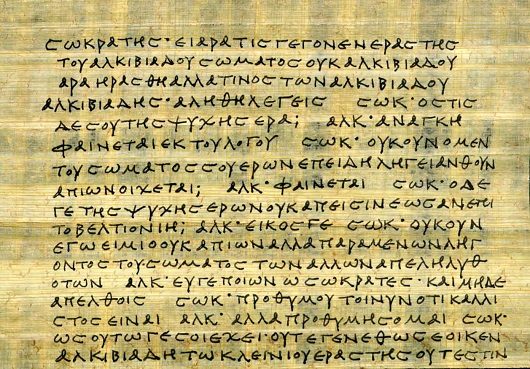 ϹΩΚΡΑΤΗϹ·ΕΙΑΡΑΤΙϹΓΕΓΟΝΕΝΕΡΑϹΤΗϹ
ΤΟΥΑΛΚΙΒΙΑΔΟΥϹΩΜΑΤΟϹΟΥΚΑΛΚΙΒΙΑΔΟΥ
ΑΡΑΗΡΑϹΘΗΑΛΛΑΤΙΝΟϹΤΩΝΑΛΚΙΒΙΑΔΟΥ
ΑΛΚΙΒΙΑΔΗϹ·ΑΛΗΘΗΛΕΓΕΙϹ ϹΩΚ·ΟϹΤΙϹ
ΔΕϹΟΥΤΗϹΨΥΧΗϹΕΡΑ; ΑΛΚ·ΑΝΑΓΚΗ
ΦΑΙΝΕΤΑΙΕΚΤΟΥΛΟΓΟΥ ϹΩΚ·ΟΥΚΟΥΝΟΜΕΝ
ΤΟΥϹΩΜΑΤΟϹϹΟΥΕΡΩΝΕΠΕΙΔΗΛΗΓΕΙΑΝΘΟΥΝ
ΑΠΙΩΝΟΙΧΕΤΑΙ; ΑΛΚ·ΦΑΙΝΕΤΑΙ ϹΩΚ·ΟΔΕ
ΓΕΤΗϹΨΥΧΗϹΕΡΩΝΟΥΚΑΠΕΙϹΙΝΕΩϹΑΝΕΠΙ
ΤΟΒΕΛΤΙΟΝΙΗ; ΑΛΚ·ΕΙΚΟϹΓΕ ϹΩΚ·ΟΥΚΟΥΝ
ΕΓΩΕΙΜΙΟΟΥΚΑΠΙΩΝΑΛΛΑΠΑΡΑΜΕΝΩΝΛΗΓ
ΟΝΤΟϹΤΟΥϹΩΜΑΤΟϹΤΩΝΑΛΛΩΝΑΠΕΛΗΛΥΘ
ΟΤΩΝ ΑΛΚ·ΕΥΓΕΠΟΙΩΝΩϹΩΚΡΑΤΕϹ·ΚΑΙΜΗΔΕ
ΑΠΕΛΘΟΙϹ ϹΩΚ·ΠΡΟΘΥΜΟΥΤΟΙΝΥΝΟΤΙΚΑΛΛΙ
ϹΤΟϹΕΙΝΑΙ ΑΛΚ·ΑΛΛΑΠΡΟΘΥΜΗϹΟΜΑΙ ϹΩΚ·
ΩϹΟΥΤΩΓΕϹΟΙΕΧΕΙ·ΟΥΤΕΓΕΝΕΘΩϹΕΟΙΚΕΝ
ΑΛΚΙΒΙΑΔΗΤΩΚΛΕΙΝΙΟΥΕΡΑϹΤΗϹΟΥΤΕϹΤΙΝ